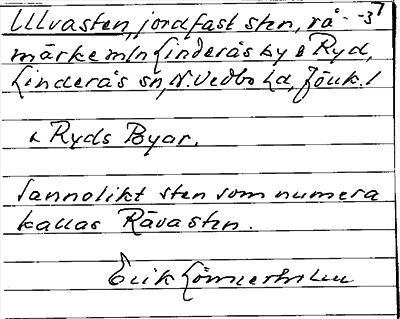 Ulvasten, jordfast sten, rå- -37
märke m/n Linderås by o Ryd,
Linderås sn, N. Vedbo hd, Jönk. l
Ryds Byar.
Sannolikt sten som numera
kallas Rävasten.
Erik